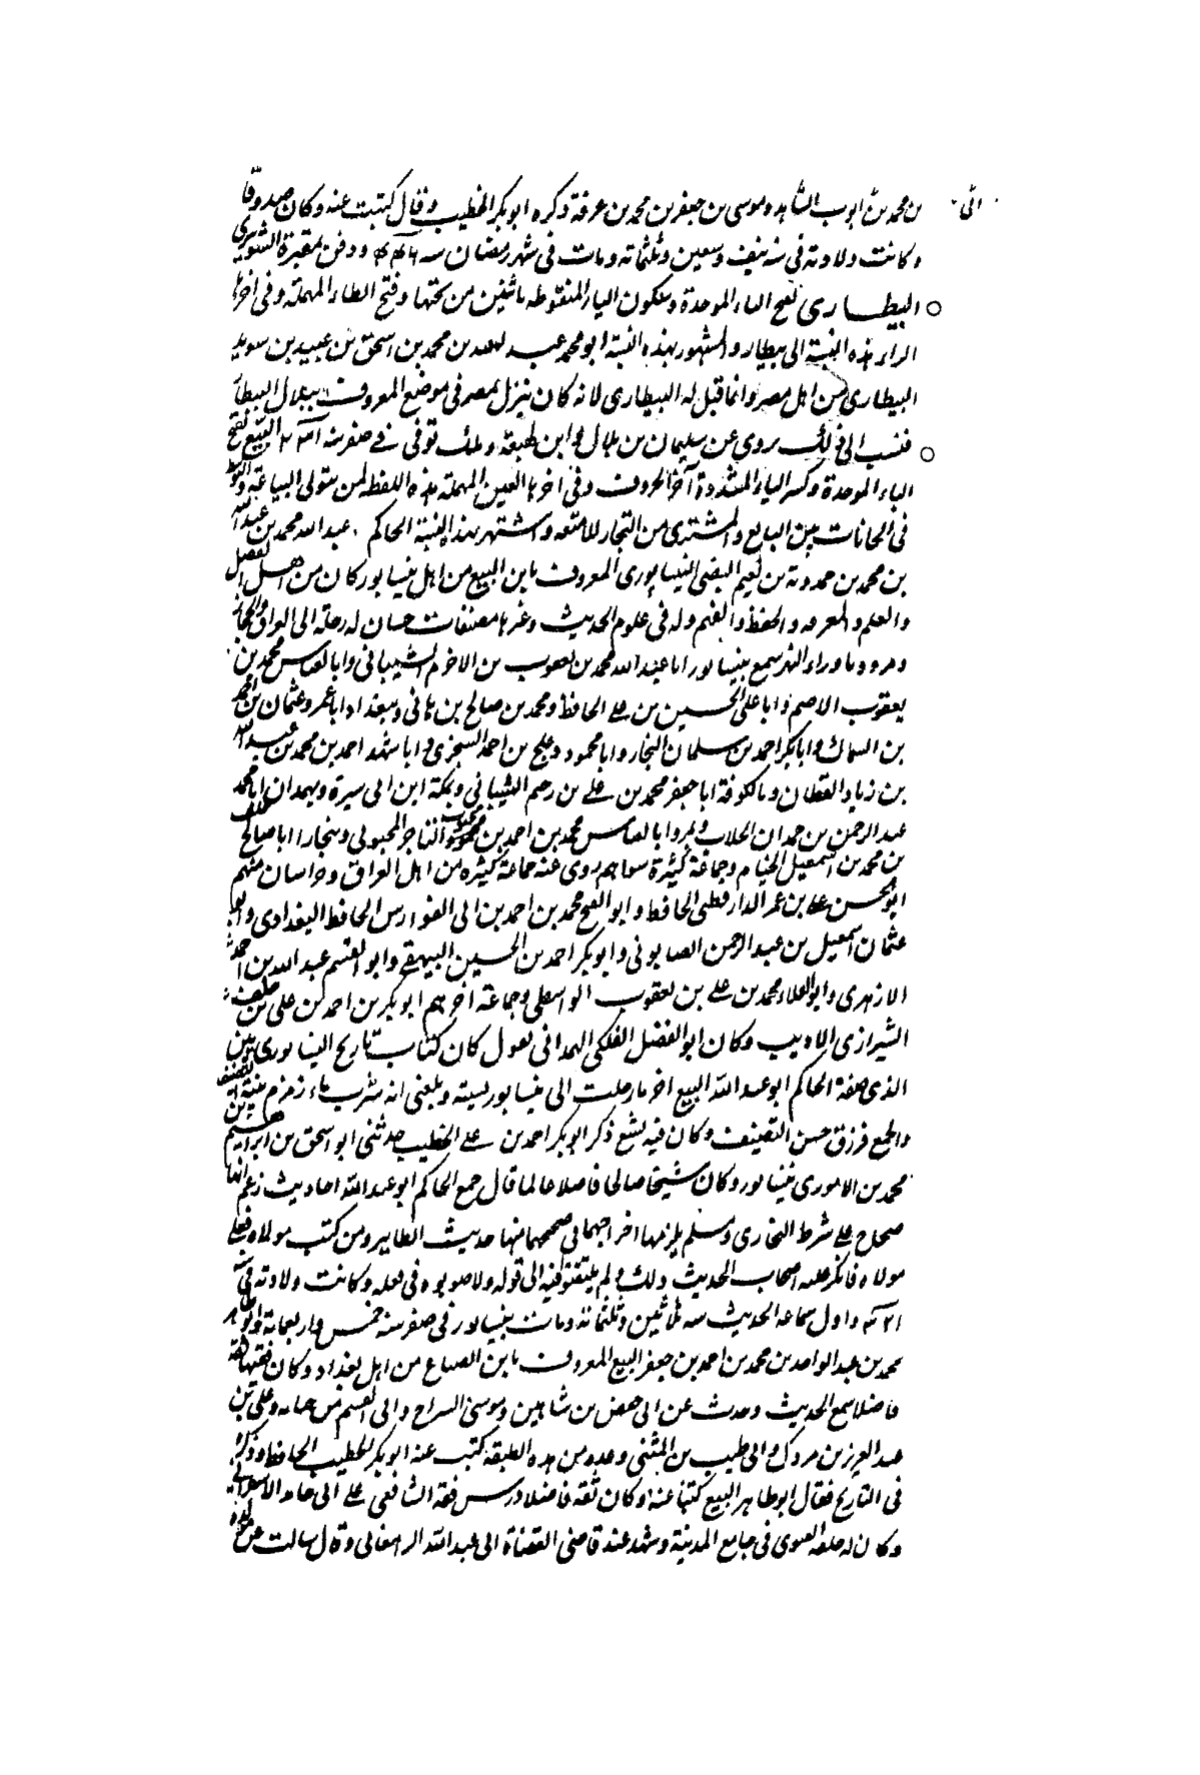 بن محمد بن ايوب الشاهد وموسى بن جعفر بن محمد بن عرفة ذكره ابو بكر الخطيب وقال كتبت عنه وكان صدوقا
وكانت ولادته فى سنة نيف وسبعين وثلثمائة ومات فى شهر رمضان سنة ودفن بمقبرة الشونيزى
البيطارى بفتح الباء الموحدة وسكون الياء المنقوطة باثنين من تحتها وفتح الطاء المهملة وفى اخرها
الراء هذه النسبة الى بيطار والمشهور بهذه النسبة ابو محمد عبد الله بن محمد بن اسحق بن عبيد بن سويد
البيطارى من اهل مصر وانما قيل له البيطارى لانه كان ينزل بمصر فى موضع المعروف ببلال البيطار
فنسب الى ذلك يروى عن سليمان بن بلال وابن لهيعة وملك توفى فى صفر سنة ٢٣١ البيع بفتح
الباء الموحدة وكسر الياء المشددة آخر الحروف وفى اخرها العين المهملة هذه اللفظة لمن يتولى البياعة والتوسط
فى الخانات بين البايع والمشترى من التجار للامتعة واشتهر بهذه النسبة الحاكم ابو عبد الله محمد بن عبد الله
بن محمد بن حمدويه بن نعيم الضبى النيسابورى المعروف بابن البيع من اهل نيسابور كان من اهل الفضل
والعلم والمعرفة والحفظ والفهم وله فى علوم الحديث وغيرها مصنفات حسان له رحلة الى العراق والحجاز
ومرو وما وراء النهر سمع بنيسابور ابا عبد الله محمد بن يعقوب بن الاخرم الشيبانى وابا العباس محمد بن
يعقوب الاصم وابا على الحسين بن على الحافظ ومحمد بن صالح بن هانى وببغداد ابا عمرو عثمان بن احمد
بن السماك وابا بكر احمد بن سلمان النجار وابا محمود دعلج بن احمد السجزى وابا سهد احمد بن محمد بن عبد الله
بن زياد القطان وبالكوفة ابا جعفر محمد بن على بن رحيم الشيبانى وبمكة ابن ابى سيرة وبهمدان ابا محمد
عبد الرحمن بن حمدان الجلاب وبمرو ابا العباس محمد بن احمد بن محبوب التاجر المحبوبى وببخارا ابا صالح خلف
بن محمد بن اسمعيل الخيام وجماعة كثيرة سواهم روى عنه جماعة كثيرة من اهل العراق وخراسان منهم
ابو الحسن على بن عمر الدارقطنى الحافظ وابو الفتح محمد بن احمد بن ابى الفوارس الحافظ البغدادى وابو
عثمان اسمعيل بن عبد الرحمن الصابونى وابو بكر احمد بن الحسين البيهقى وابو القسم عبد الله بن احمد
الازهرى وابو العلاء محمد بن على بن يعقوب الواسطى وجماعة اخرهم ابو بكر بن احمد بن على بن خلف
الشيرازى الاديب وكان ابو الفضل الفلكى الهمدانى يقول كان كتاب تاريخ النيسابوريين
الذى صنفه الحاكم ابو عبد الله البيع احد ما رحلت الى نيسابور بسببه وبلغنى انه شرب ماء زمزم بنية التصنيف
والجمع فرزق حسن التصنيف وكان فيه تشيع ذكر ابو بكر احمد بن على الخطيب حدثنى ابو اسحق بن ابراهيم بن
محمد بن الامورى بنيسابور وكان شيخا صالحا فاضلا عالما قال جمع الحاكم ابو عبد الله احاديث زعم انها
صحاح على شرط البخارى ومسلم يلزمهما اخراجهما فى صحيحهما منها حديث الطاير ومن كنت مولاه فعلى
مولاه فانكر عليه اصحاب الحديث ذلك ولم يلتفتوا فيه الى قوله ولا صوبوه فى فعله وكانت ولادته فى سنة
٣٢١ واول سماعه الحديث سنة ثلثين وثلثمائة ومات بنيسابور فى صفر سنة خمس واربعمائة وابو طاهر
محمد بن عبد الواحد بن محمد بن احمد بن جعفر البيع المعروف بابن الصباغ من اهل بغداد وكان فقيها ثقة
فاضلا سمع الحديث وحدث عن ابى حفص بن شاهين وموسى السراج وابى القسم بن حبابه وعلى بن
عبد العزيز بن مردك وابى طيب بن المثنى وغيره من هذه الطبقة كتب عنه ابو بكر الخطيب الحافظ وذكره
فى التاريخ فقال ابو طاهر البيع كتبنا عنه وكان ثقة فاضلا درس فقه الشافعى على ابى حامد الاسفراينى
وكان له حلقة الفتوى فى جامع المدينة وشهد عند قاضى القضاة ابى عبد الله الدامغانى وقال سالت عن مولده